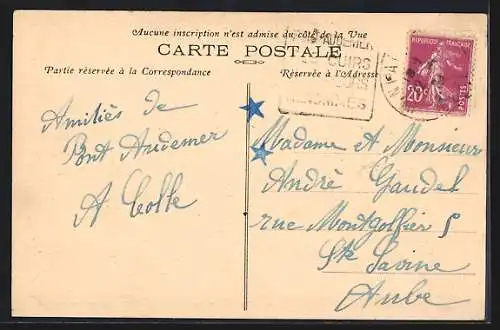 Aucune inscription n'est admise du côté de la Vue
CARTE POSTALE
Partie réservée à la Correspondance
Réservée à l'Adresse
AUDEMER
CUIRS
RENOMMÉS
REPUBLIQUE FRANÇAISE
20c
POSTES
Amitiés de
Pont Audemer
A
Madame et Monsieur
André Gaudet
rue Montgolfier 5
Ste Savine
Aube